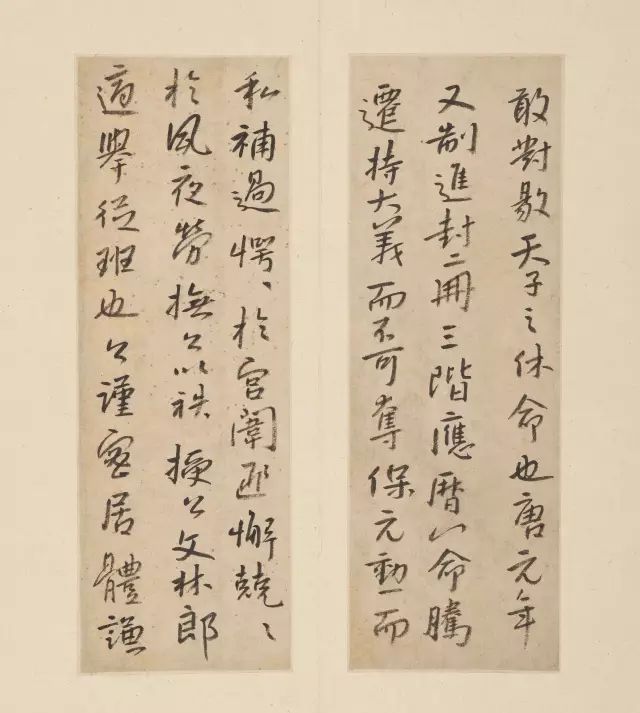 敢對敭天子之休命也唐元年
又制進封二冊三階應曆以命騰
遷持大義而不可奪保元勳而
私補過愕〻於宮闈匪懈兢〻
於夙夜勞撫公以秩授公文林郎
適舉從班也公謹密居體謙